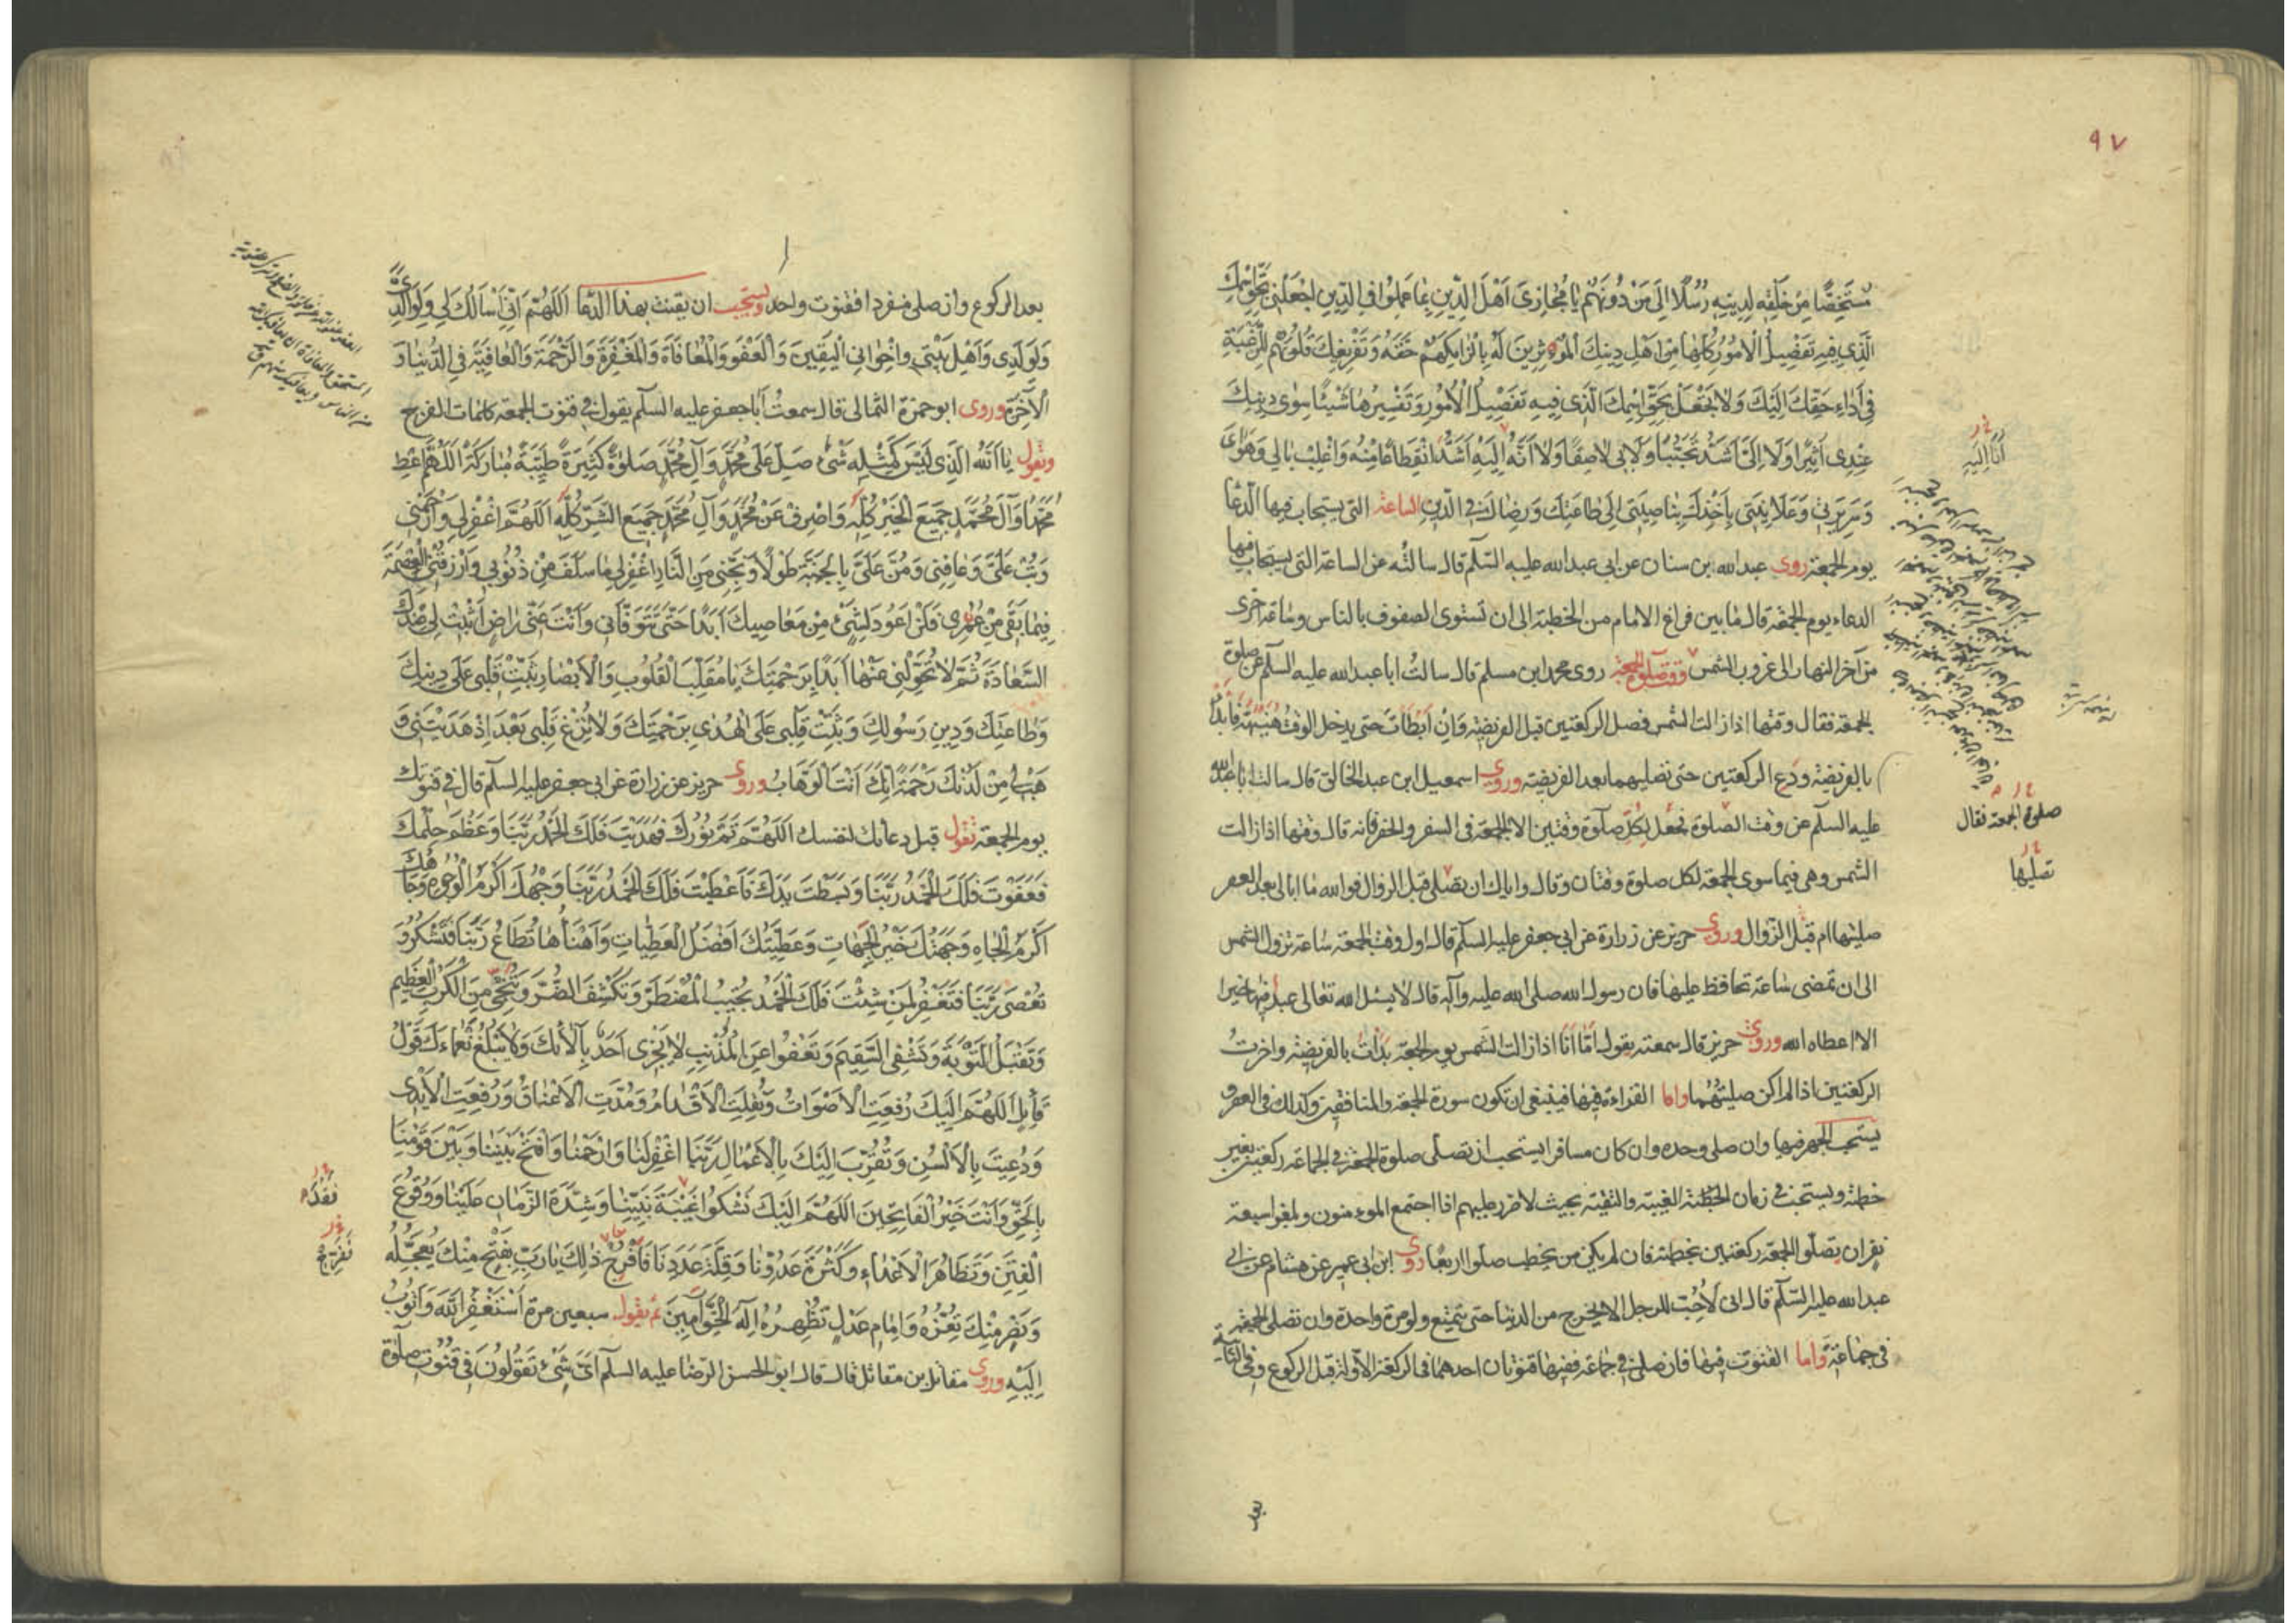 ٩٧
مُسْتَخِصًّا مِنْ خَلْقِهِ لِدِينِهِ رُسُلًا اِلَى مَنْ دُونَهُمْ يَا مُجَازِىَ اَهْلَ الدِّينِ بِمَا عَمِلُوا فِى الدِّينِ اجْعَلْنِى بِحَقِّ اسْمِكَ
الَّذِى فِيهِ تَفْصِيلُ الْاُمُورِ كُلِّهَا مِنْ اَهْلِ دِينِكَ الْمُؤْثِرِينَ لَهُ بِاِلْزَامِكَهُمْ حَقَّهُ وَتَفْرِيغِكَ قُلُوبَهُمْ لِلرَّغْبَةِ
فِى اَدَاءِ حَقِّكَ اِلَيْكَ وَلَا تَجْعَلْ بِحَقِّ اسْمِكَ الَّذِى فِيهِ تَفْصِيلُ الْاُمُورِ وَتَفْسِيرُهَا شَيْئًا سِوَى دِينِكَ
عِنْدِى اَثِيرًا وَلَا اِلَىَّ اَشَدَّ تَحَبُّبًا وَلَا بِى لَاصِقًا وَلَا اَنَّهُ اِلَيْهِ اَشَدَّ انْقِطَاعًا مِنْهُ وَاغْلِبْ بَالِى وَهَوَاىَ
اَنَا اِلَيْهِ
وَسَرِيرَتِى وَعَلَانِيَتِى بِاَخْذِكَ بِنَاصِيَتِى اِلَى طَاعَتِكَ وَرِضَاكَ فِى الدِّينِ الساعة التى يستجاب فيها الدعا
يوم الجمعة روى عبدالله بن سنان عن ابى عبدالله عليه السلم قال سالته عن الساعة التى يستجاب فيها
الدعاء يوم الجمعة قال ما بين فراغ الامام من الخطبة الى ان تستوى الصفوف بالناس وساعة اخرى
من آخر النهار الى غروب الشمس وقت صلوة الجمعة روى محمد ابن مسلم قال سالتُ ابا عبدالله عليه السلم عن صلوة
الجمعة فقال وقتها اذا زالت الشمس فصل الركعتين قبل الفريضة وَاِنْ اَبْطَأْتَ حتى يدخل الوقت هُنَيْهَةً فَابْدَأْ
بالفريضة ودَعِ الركعتين حتى تصليهما بعد الفريضة وروى اسمعيل ابن عبد الخالق قال سالت ابا عبدالله
صلوة الجمعة فقال
عليه السلم عن وقت الصلوة فجعل لِكُلِّ صلوة وقتين الا الجمعة فى السفر والحضر فانه قال وقتها اذا زالت
الشمس وهى فيما سوى الجمعة لكل صلوة وقتان وقال واياك ان تصلى قبل الزوال فوالله ما ابالى بعد العصر
تصليها
صليتها ام قبل الزوال وروى حريز عن زرارة عن ابى جعفر عليه السلم قال اول وقت الجمعة ساعة تزول الشمس
الى ان تمضى ساعة تحافظ عليها فان رسول الله صلى الله عليه وآله قال لا يسئل الله تعالى عبد فيها خيرا
الا اعطاه الله وروى حريز قال سمعته يقول اَمَّا اَنَا اذا زالت الشمس يوم الجمعة بَدَأْتُ بالفريضة واخرتُ
الركعتين اذا لم اكن صليتُهُما واما القراءة فيها فينبغى ان تكون سورة الجمعة والمنافقين وكذلك فى العصر و
يستحب الجهر فيها وان صلى وحده وان كان مسافرا يستحب ان تصلى صلوة الجمعة فى الجماعة ركعتين بغير
خطبة ويستحب فى زمان الغيبة والتقية بحيث لا ضرر عليهم اذا اجتمع المومنون وبلغوا سبعة
نفر ان يصلوا الجمعة ركعتين بخطبة فان لم يكن من يخطب صلوا اربعًا روى ابن ابى عمير عن هشام عن ابى
عبدالله عليه السلم قال انى لَاُحِبّ للرجل الا يخرج من الدنيا حتى يتمتع ولو مرة واحدة وان تصلى الجمعة
فى جماعَةٍ واما القنوت فيها فان صلى فى جماعة ففيها قنوتان احدهما فى الركعة الاولة قبل الركوع وفى الثانية
بعد
بعد الركوع وان صلى منفردا فقنوت واحد ويستحب ان يقنت بهذا الدعا اَللَّهُمَّ اِنِّى اَسْاَلُكَ لِى وَلِوَالِدَىَّ
وَلِوَلَدِى وَاَهْلِ بَيْتِى وَاِخْوَانِى الْيَقِينَ وَالْعَفْوَ وَالْمُعَافَاةَ وَالْمَغْفِرَةَ وَالرَّحْمَةَ وَالْعَافِيَةَ فِى الدُّنْيَا وَ
الْاٰخِرَةِ وروى ابو حمزة الثمالى قال سمعتُ اَبا جعفر عليه السلم يقول فى قنوت الجمعة كلمات الفرج
وتقول يَا اَللّٰهُ الَّذِى لَيْسَ كَمِثْلِهِ شَىْءٌ صَلِّ عَلَى مُحَمَّدٍ وَآلِ مُحَمَّدٍ صَلَوةً كَثِيرَةً طَيِّبَةً مُبَارَكَةً اَللَّهُمَّ اَعْطِ
مُحَمَّدًا وَآلَ مُحَمَّدٍ جَمِيعَ الْخَيْرِ كُلِّهِ وَاصْرِفْ عَنْ مُحَمَّدٍ وَآلِ مُحَمَّدٍ جَمِيعَ الشَّرِّ كُلِّهِ اَللَّهُمَّ اغْفِرْ لِى وَارْحَمْنِى
وَتُبْ عَلَىَّ وَعَافِنِى وَمُنَّ عَلَىَّ بِالْجَنَّةِ طَوْلًا وَنَجِّنِى مِنَ النَّارِ اغْفِرْ لِى مَا سَلَفَ مِنْ ذُنُوبِى وَارْزُقْنِى الْعِصْمَةَ
فِيمَا بَقِىَ مِنْ عُمْرِى وَلَنْ اَعُودَ لِشَىْءٍ مِنْ مَعَاصِيكَ اَبَدًا حَتَّى تَتَوَفَّانِى وَاَنْتَ عَنِّى رَاضٍ اَثْبِتْ لِى عِنْدَكَ
السَّعَادَةَ ثُمَّ لَا تُحَوِّلْنِى عَنْهَا اَبَدًا بِرَحْمَتِكَ يَا مُقَلِّبَ الْقُلُوبِ وَالْاَبْصَارِ ثَبِّتْ قَلْبِى عَلَى دِينِكَ
وَطَاعَتِكَ وَدِينِ رَسُولِكَ وَثَبِّتْ قَلْبِى عَلَى الْهُدَى بِرَحْمَتِكَ وَلَا تُزِغْ قَلْبِى بَعْدَ اِذْ هَدَيْتَنِى وَ
هَبْ لِى مِنْ لَدُنْكَ رَحْمَةً اِنَّكَ اَنْتَ الْوَهَّابُ وروى حريز عن زرارة عن ابى جعفر عليه السلم قال فى قنوتك
يوم الجمعة تقول قبل دعائك لنفسك اَللَّهُمَّ تَمَّ نُورُكَ فَهَدَيْتَ فَلَكَ الْحَمْدُ رَبَّنَا وَعَظُمَ حِلْمُكَ
فَعَفَوْتَ فَلَكَ الْحَمْدُ رَبَّنَا وَبَسَطْتَ يَدَكَ فَاَعْطَيْتَ فَلَكَ الْحَمْدُ رَبَّنَا وَجْهُكَ اَكْرَمُ الْوُجُوهِ وَجَاهُكَ
اَكْرَمُ الْجَاهِ وَجِهَتُكَ خَيْرُ الْجِهَاتِ وَعَطِيَّتُكَ اَفْضَلُ الْعَطِيَّاتِ وَاَهْنَأُهَا تُطَاعُ رَبَّنَا فَتَشْكُرُ وَ
تُعْصَى رَبَّنَا فَتَغْفِرُ لِمَنْ شِئْتَ فَلَكَ الْحَمْدُ تُجِيبُ الْمُضْطَرَّ وَتَكْشِفُ الضُّرَّ وَتُنَجِّى مِنَ الْكَرْبِ الْعَظِيمِ
وَتَقْبَلُ التَّوْبَةَ وَتَشْفِى السَّقِيمَ وَتَعْفُوا عَنِ الْمُذْنِبِ لَا يَجْزِى اَحَدٌ بِآلَائِكَ وَلَا يَبْلُغُ نَعْمَاءَكَ قَوْلُ
قَائِلٍ اَللَّهُمَّ اِلَيْكَ رُفِعَتِ الْاَصْوَاتُ وَنُقِلَتِ الْاَقْدَامُ وَمُدَّتِ الْاَعْنَاقُ وَرُفِعَتِ الْاَيْدِى
وَدُعِيَتَ بِالْاَلْسُنِ وَتُقُرِّبَ اِلَيْكَ بِالْاَعْمَالِ رَبَّنَا اغْفِرْ لَنَا وَارْحَمْنَا وَافْتَحْ بَيْنَنَا وَبَيْنَ قَوْمِنَا
بِالْحَقِّ وَاَنْتَ خَيْرُ الْفَاتِحِينَ اَللَّهُمَّ اِلَيْكَ نَشْكُوا غَيْبَةَ نَبِيِّنَا وَشِدَّةَ الزَّمَانِ عَلَيْنَا وَوُقُوعَ
الْفِتَنِ وَتَظَاهُرَ الْاَعْدَاءِ وَكَثْرَةَ عَدُوِّنَا وَقِلَّةَ عَدَدِنَا فَافْرُجْ ذٰلِكَ يَا رَبِّ بِفَتْحٍ مِنْكَ تُعَجِّلُهُ
وَنَصْرٍ مِنْكَ تُعِزُّهُ وَاِمَامِ عَدْلٍ تُظْهِرُهُ اِلٰهَ الْحَقِّ آمِينَ ثم تقول سبعين مرة اَسْتَغْفِرُ اللّٰهَ وَاَتُوبُ
اِلَيْهِ وروى مقاتل بن مقاتل قال قال ابو الحسن الرضا عليه السلم اَىَّ شَىْءٍ تَقُولُونَ فِى قُنُوتِ صلوة